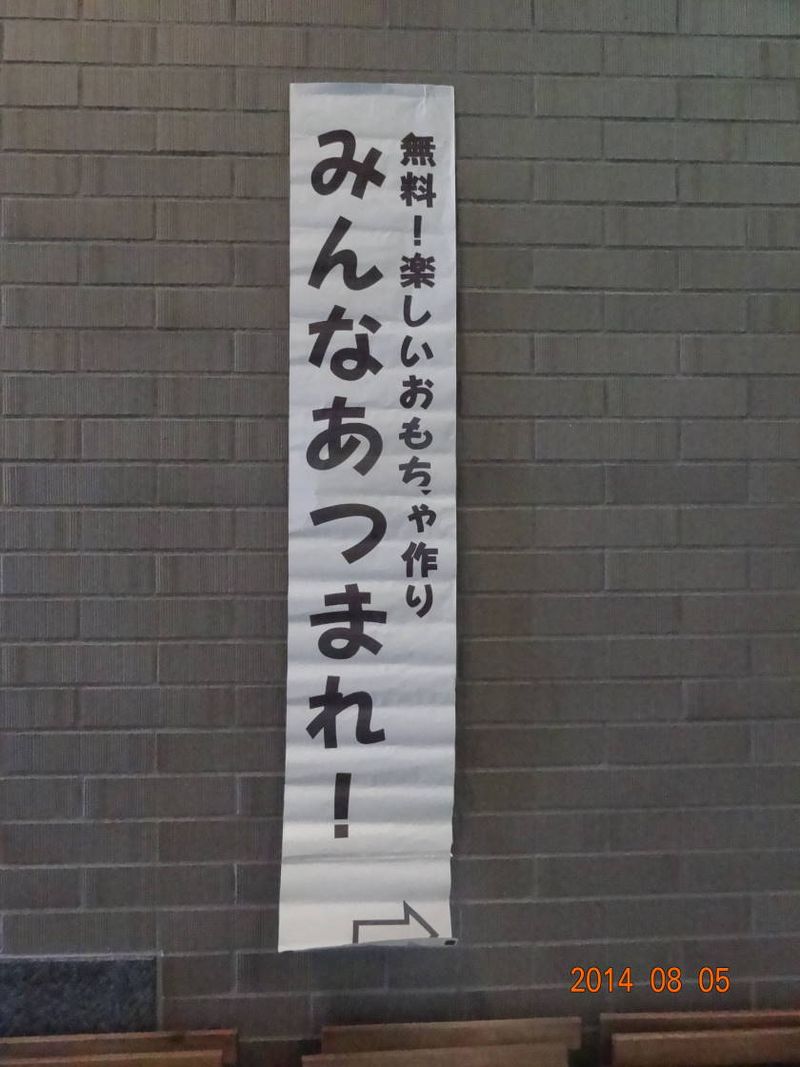 無料！楽しいおもちゃ作り
みんなあつまれ！
2014 08 05